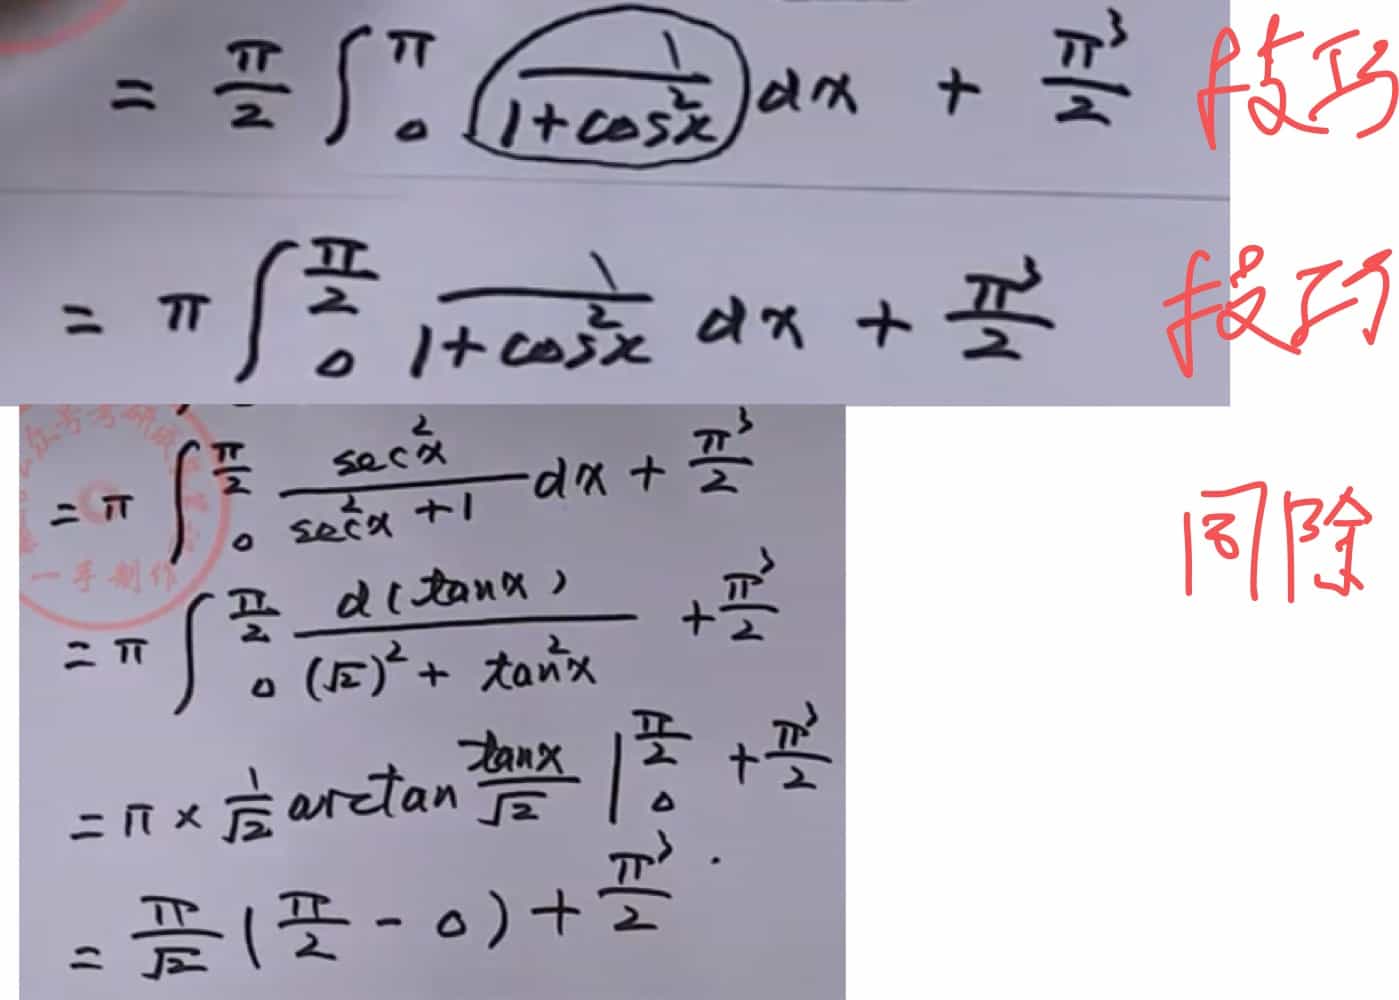 = π/2 ∫₀^π 1/(1+cos²x) dx + π³/2 技巧
= π ∫₀^(π/2) 1/(1+cos²x) dx + π³/2 技巧
= π ∫₀^(π/2) sec²x/(sec²x+1) dx + π³/2 同除
一手制作
= π ∫₀^(π/2) d(tanx)/((√2)²+tan²x) + π³/2
= π × 1/√2 arctan tanx/√2 |₀^(π/2) + π³/2
= π/√2 (π/2 - 0) + π³/2 .